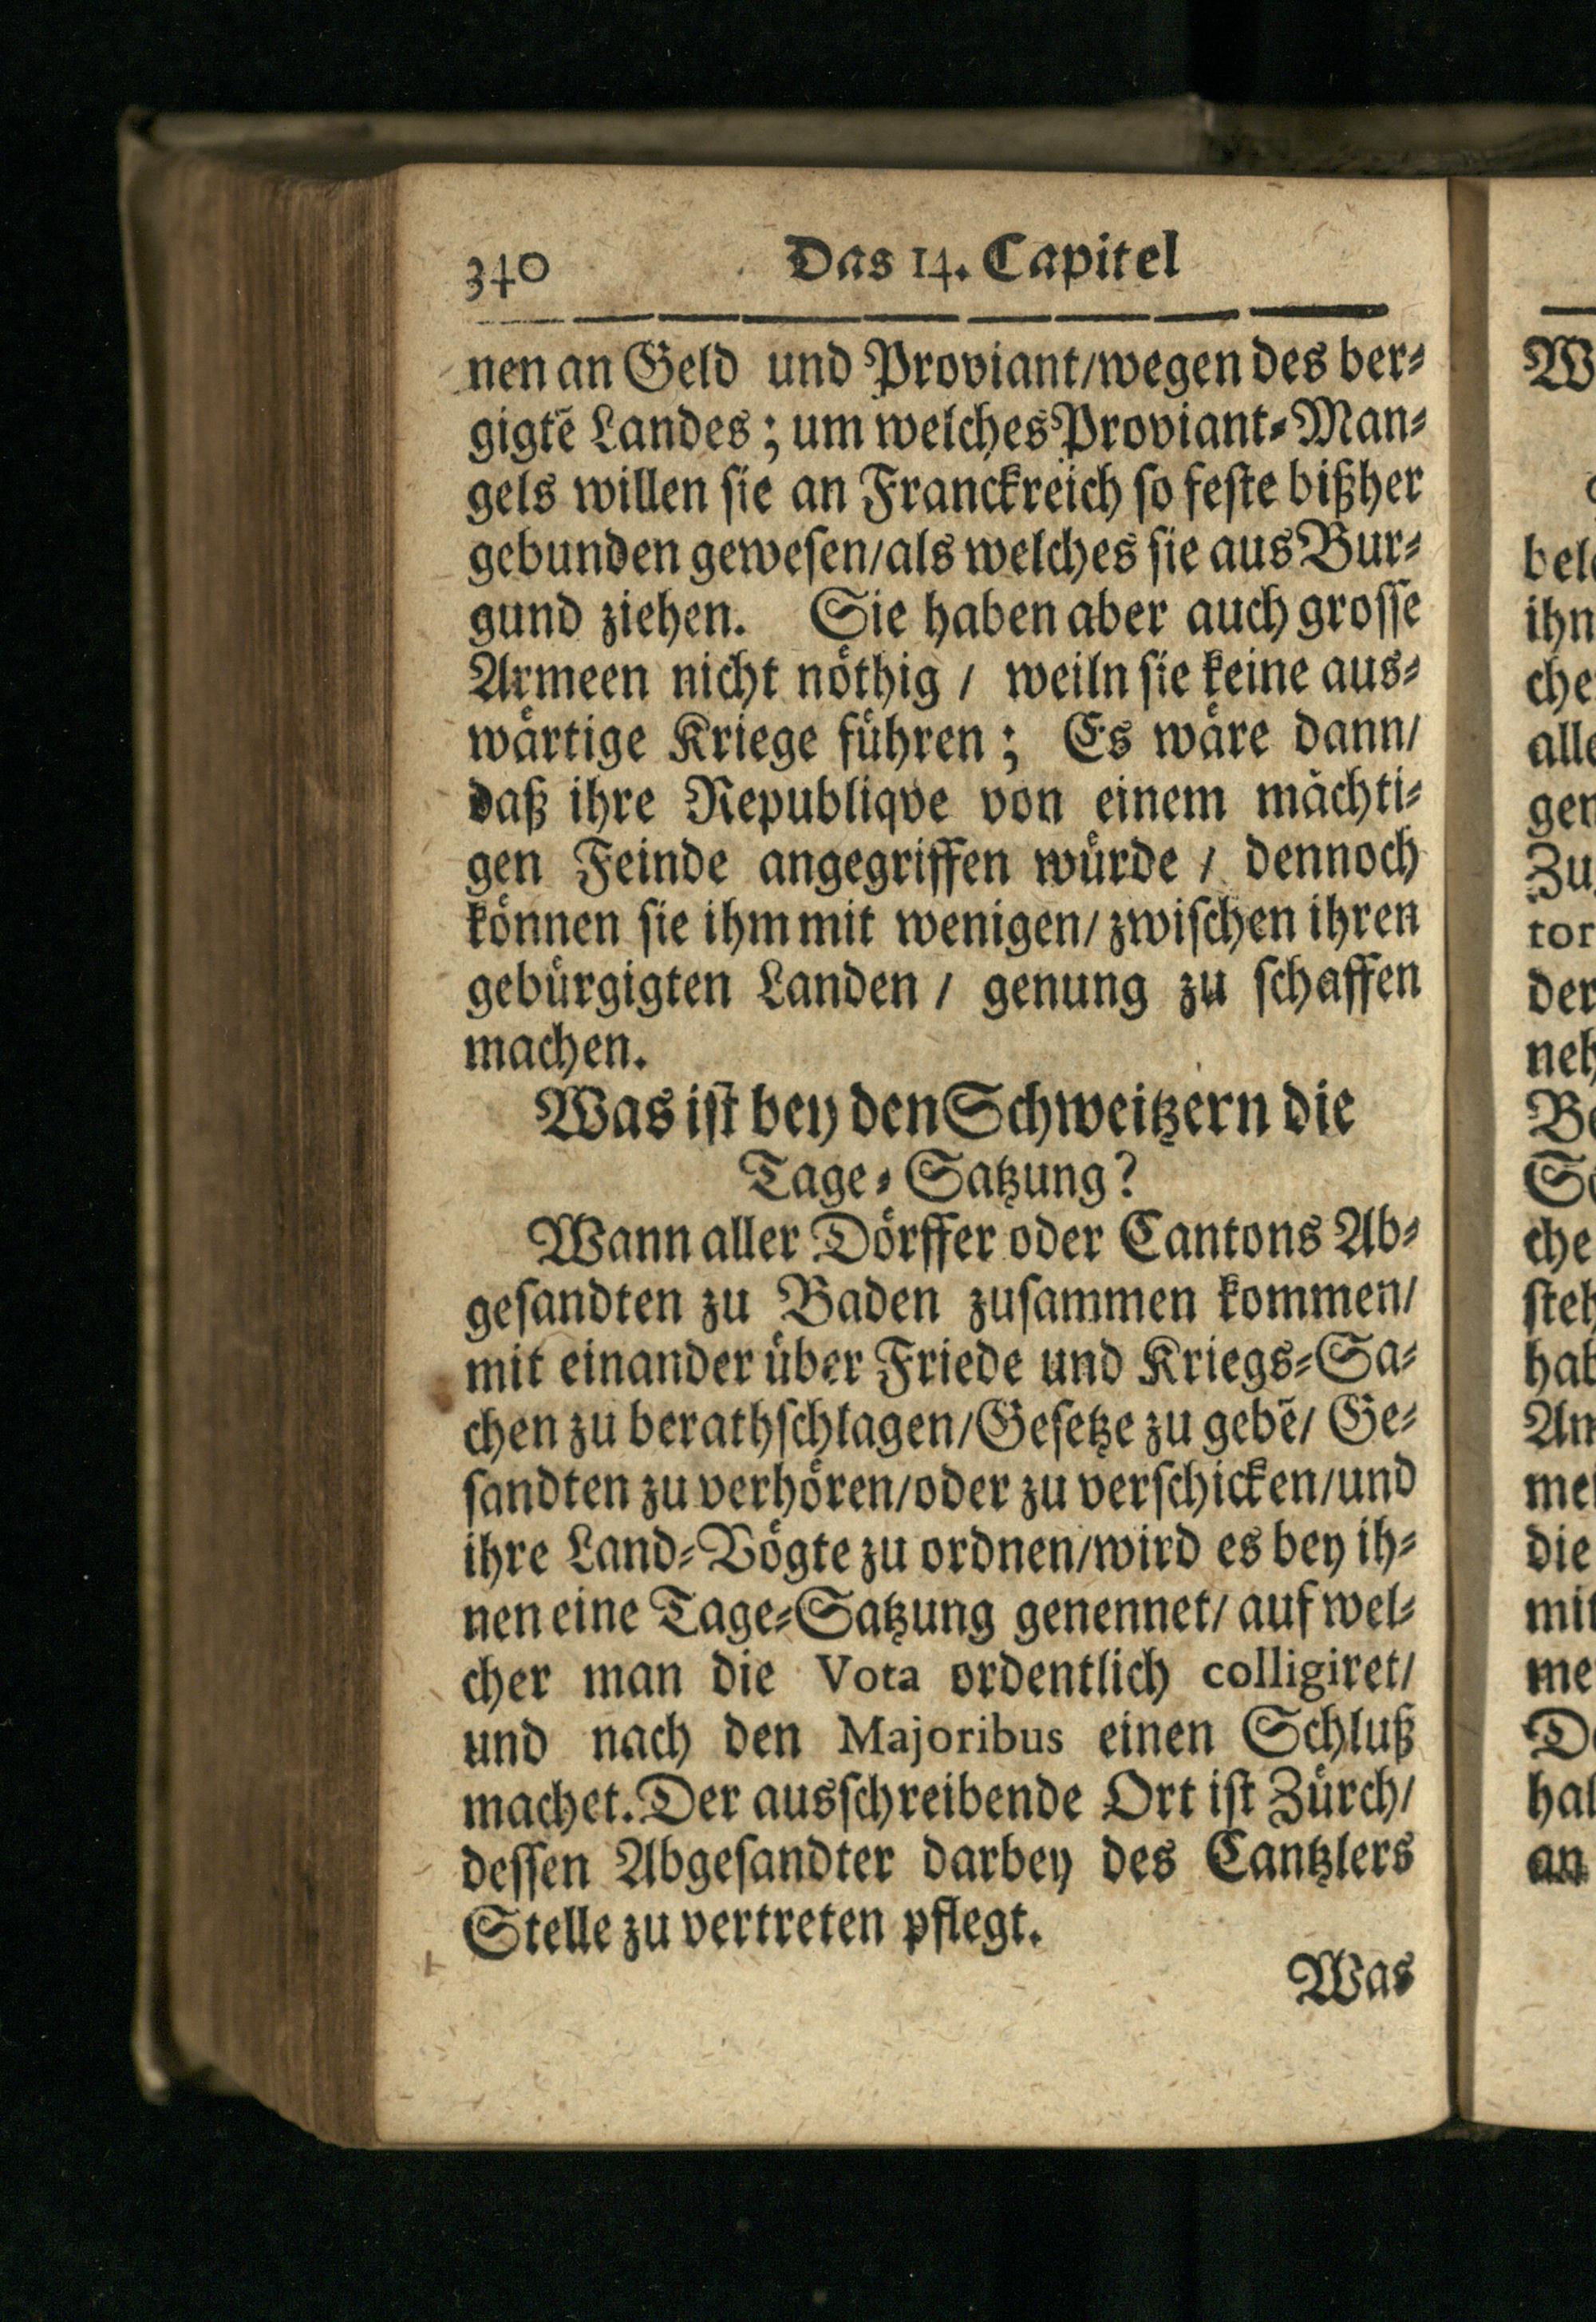 340 Das 14. Capitel
nen an Geld und Proviant/wegen des ber⸗
gigtē Landes; um welches Proviant⸗Man⸗
gels willen sie an Franckreich so feste bißher
gebunden gewesen/als welches sie aus Bur⸗
gund ziehen. Sie haben aber auch grosse
Armeen nicht nöthig / weiln sie keine aus⸗
wärtige Kriege führen; Es wäre dann/
daß ihre Republiqve von einem mächti⸗
gen Feinde angegriffen würde / dennoch
können sie ihm mit wenigen/ zwischen ihren
gebürgigten Landen / genung zu schaffen
machen.
Was ist bey den Schweitzern die
Tage⸗Satzung?
Wann aller Dörffer oder Cantons Ab⸗
gesandten zu Baden zusammen kommen/
mit einander über Friede und Kriegs⸗Sa⸗
chen zu berathschlagen/Gesetze zu gebē/ Ge⸗
sandten zu verhören/oder zu verschicken/und
ihre Land⸗Vögte zu ordnen/wird es bey ih⸗
nen eine Tage⸗Satzung genennet/ auf wel⸗
cher man die Vota ordentlich colligiret/
und nach den Majoribus einen Schluß
machet. Der ausschreibende Ort ist Zürch/
dessen Abgesandter darbey des Cantzlers
Stelle zu vertreten pflegt.
Was